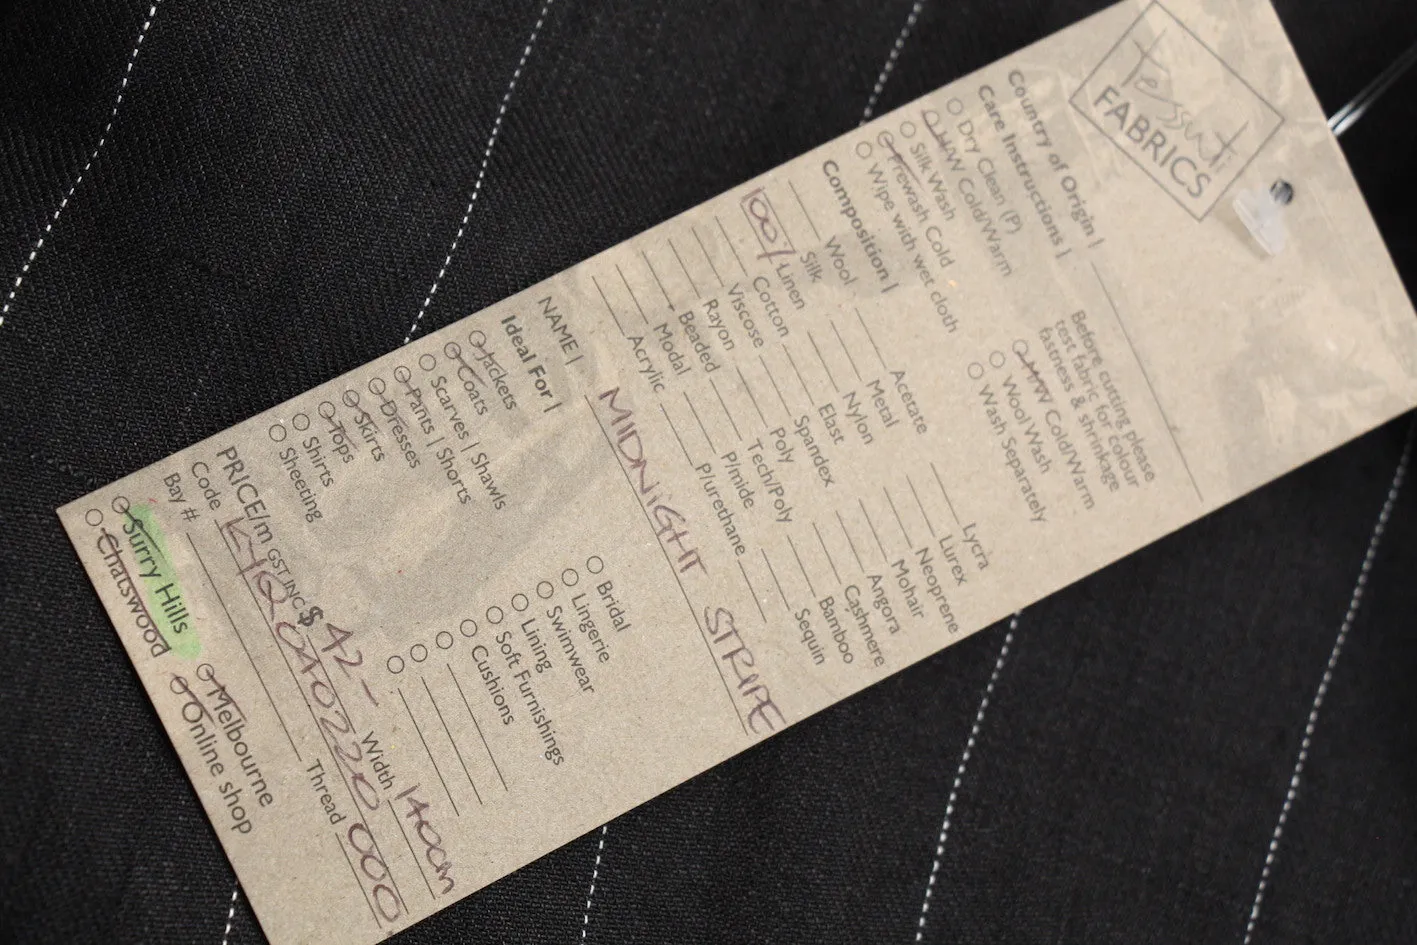 tessuti
FABRICS
Country of Origin |
Care Instructions |
Before cutting please
test fabric for colour
fastness & shrinkage
Dry Clean (P)
MW Cold/Warm
HW Cold/Warm
Silk Wash
Wool Wash
Prewash Cold
Wash Separately
Wipe with wet cloth
Composition |
Wool
Acetate
Lycra
Silk
Metal
Lurex
100% Linen
Nylon
Neoprene
Cotton
Elast
Mohair
Viscose
Spandex
Angora
Rayon
Poly
Cashmere
Beaded
Tech/Poly
Bamboo
Modal
P/mide
Sequin
Acrylic
P/urethane
NAME | MIDNIGHT STRIPE
Ideal For |
Jackets
Bridal
Coats
Lingerie
Scarves | Shawls
Swimwear
Pants | Shorts
Lining
Dresses
Soft Furnishings
Skirts
Cushions
Tops
Shirts
Sheeting
PRICE/m GST INC $ 42- Width 140cm
Code
Thread 000
Bay #
Surry Hills
Melbourne
Chatswood
Online shop